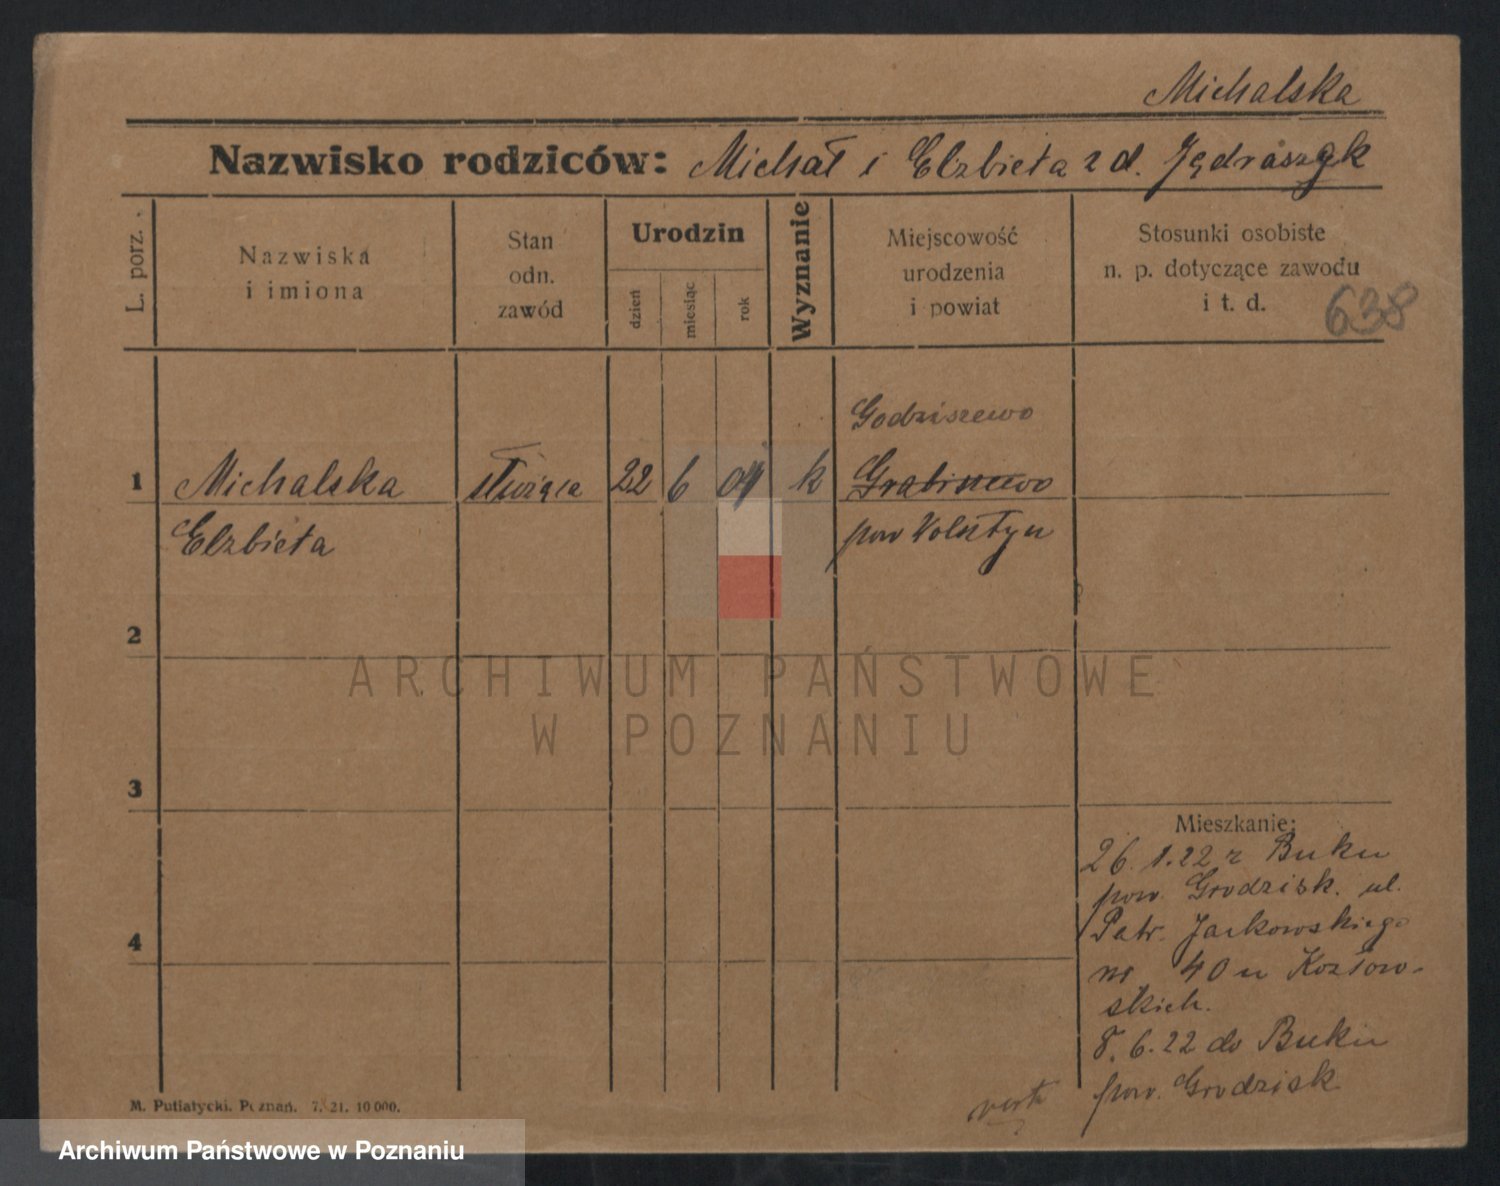 Michalska
Nazwisko rodziców: Michał i Elzbieta z d. Jędraszyk
L. porz.
Nazwiska
i imiona
Stan
odn.
zawód
Urodzin
dzień
miesiąc
rok
Wyznanie
Miejscowość
urodzenia
i powiat
Stosunki osobiste
n. p. dotyczące zawodu
i t. d.
638
Godziszewo
1 Michalska służąca 22 6 04 k
Elzbieta pow Wolsztyn
2
ARCHIWUM PAŃSTWOWE
W POZNANIU
3
Mieszkanie:
26. 1. 22 z Buku
pow. Grodzisk. ul.
Patr. Jackowskiego
nr 40 u Kozłow-
skich.
4
8. 6. 22 do Buku
pow. Grodzisk
M. Putiatycki. Poznań. 7. 21. 10 000.
Archiwum Państwowe w Poznaniu